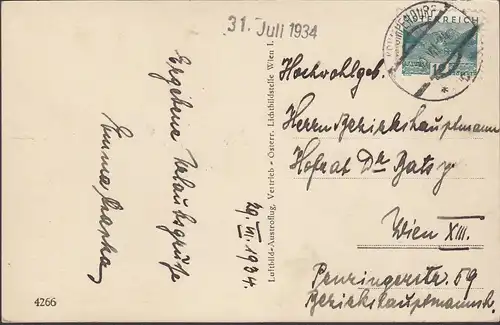 31. Juli 1934
ÖSTERREICH
Ergebene Urlaubsgrüße
29. VI. 1934.
Luftbild-Austroflug. Vertrieb - Österr. Lichtbildstelle Wien I.
Hochwohlgeb.
Herrn Bezirkshauptmann
Hofrat Dr
Wien XIII.
Penzingerstr. 59
Bezirkshauptmannsch.
4266